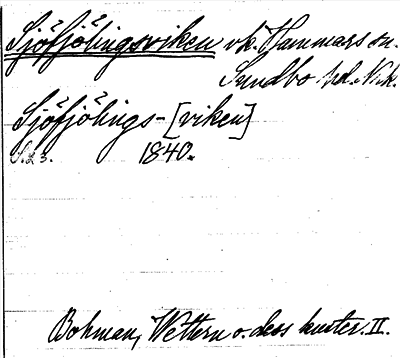 Sjöfjölingsviken vk. Hammars sn.
Sundbo hd. Nrk.
Sjöfjölings-[viken]
S. 23. 1840.
Bohman, Wettern o. dess kuster. II.